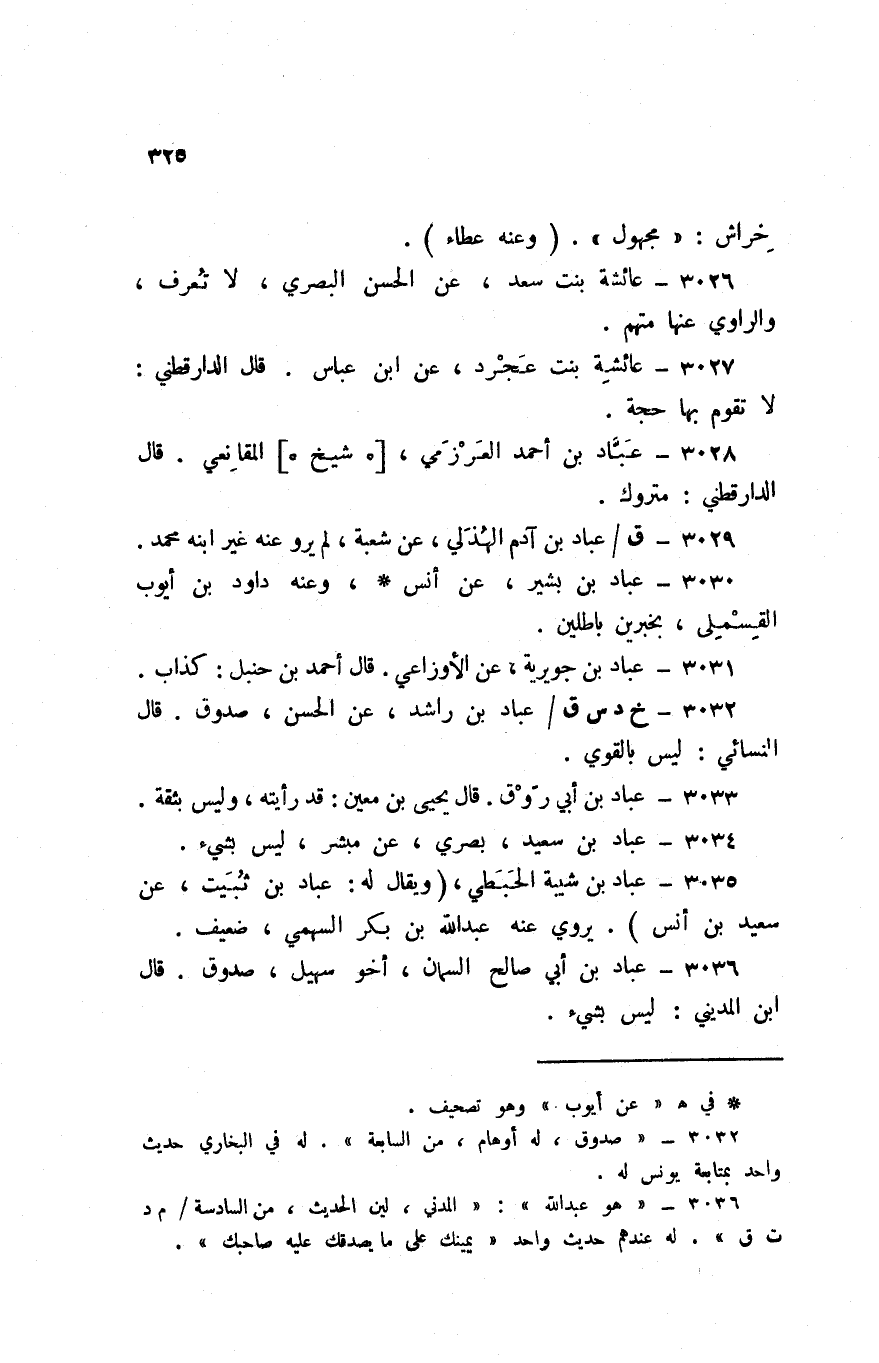 ٣٢٥
خِراش : « مجهول » . ( وعنه عطاء ) .
٣٠٢٦ – عائشة بنت سعد ، عن الحسن البصري ، لا تُعرف ،
والراوي عنها متهم .
٣٠٢٧ – عائشة بنت عَجْرد ، عن ابن عباس . قال الدارقطني :
لا تقوم بها حجة .
٣٠٢٨ – عَبَّاد بن أحمد العَرْزَمي ، [ه شيخ ه] المقانِعي . قال
الدارقطني : متروك .
٣٠٢٩ – ق / عباد بن آدم الهُذَلي ، عن شعبة ، لم يرو عنه غير ابنه محمد .
٣٠٣٠ – عباد بن بشير ، عن أنس * ، وعنه داود بن أيوب
القِسْمِلي ، بخبرين باطلين .
٣٠٣١ – عباد بن جويرية ، عن الأوزاعي . قال أحمد بن حنبل : كذاب .
٣٠٣٢ – خ د س ق / عباد بن راشد ، عن الحسن ، صدوق . قال
النسائي : ليس بالقوي .
٣٠٣٣ – عباد بن أبي رَوْق . قال يحيى بن معين : قد رأيته ، وليس بثقة .
٣٠٣٤ – عباد بن سعيد ، بصري ، عن مبشر ، ليس بشيء .
٣٠٣٥ – عباد بن شيبة الحَبَطي ، ( ويقال له : عباد بن ثُبَيت ، عن
سعيد بن أنس ) . يروي عنه عبدالله بن بكر السهمي ، ضعيف .
٣٠٣٦ – عباد بن أبي صالح السمان ، أخو سهيل ، صدوق . قال
ابن المديني : ليس بشيء .
* في ه « عن أيوب » وهو تصحيف .
٣٠٣٢ – « صدوق ، له أوهام ، من السابعة » . له في البخاري حديث
واحد بمتابعة يونس له .
٣٠٣٦ – « هو عبدالله » : « المدني ، لين الحديث ، من السادسة / م د
ت ق » . له عندهم حديث واحد « يمينك على ما يصدقك عليه صاحبك » .